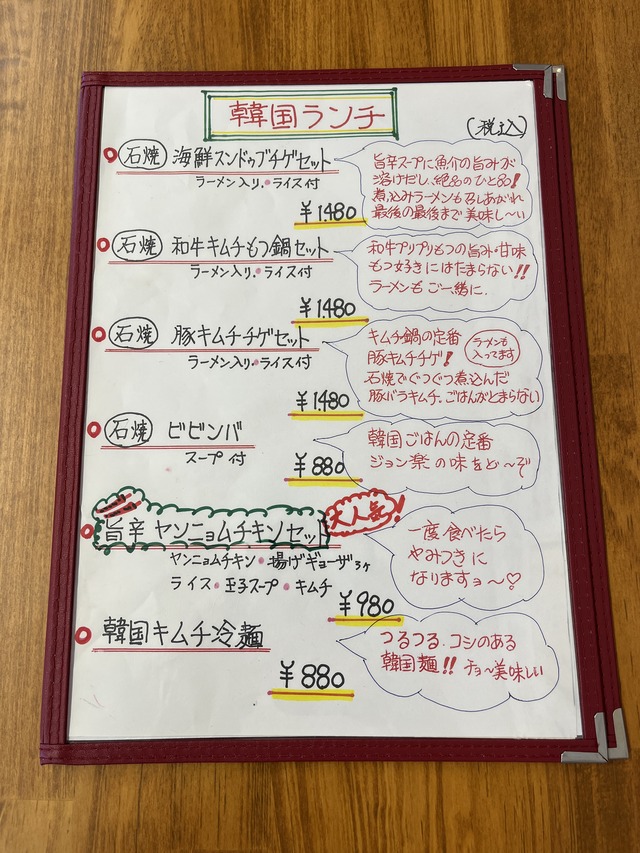 韓国ランチ
(税込)
石焼 海鮮スンドゥブチゲセット
ラーメン入り・ライス付
¥1480
旨辛スープに魚介の旨みが
溶けだし、絶品のひと品!
煮込みラーメンも召しあがれ
最後の最後まで美味し〜い
石焼 和牛キムチもつ鍋セット
ラーメン入り・ライス付
¥1480
和牛プリプリもつの旨み・甘味
もつ好きにはたまらない!!
ラーメンもご一緒に.
石焼 豚キムチチゲセット
ラーメン入り・ライス付
¥1480
キムチ鍋の定番
豚キムチチゲ!
ラーメンも
入ってます
石焼でぐつぐつ煮込んだ
豚バラキムチ、ごはんがとまらない
石焼 ビビンバ
スープ付
¥880
韓国ごはんの定番
ジョン楽の味をど〜ぞ
旨辛 ヤンニョムチキンセット
大人気!
ヤンニョムチキン・揚げギョーザ3ヶ
ライス・玉子スープ・キムチ
¥980
一度食べたら
やみつきに
なりますョ〜♡
韓国キムチ冷麺
¥880
つるつる、コシのある
韓国麺!! チョ〜美味しい